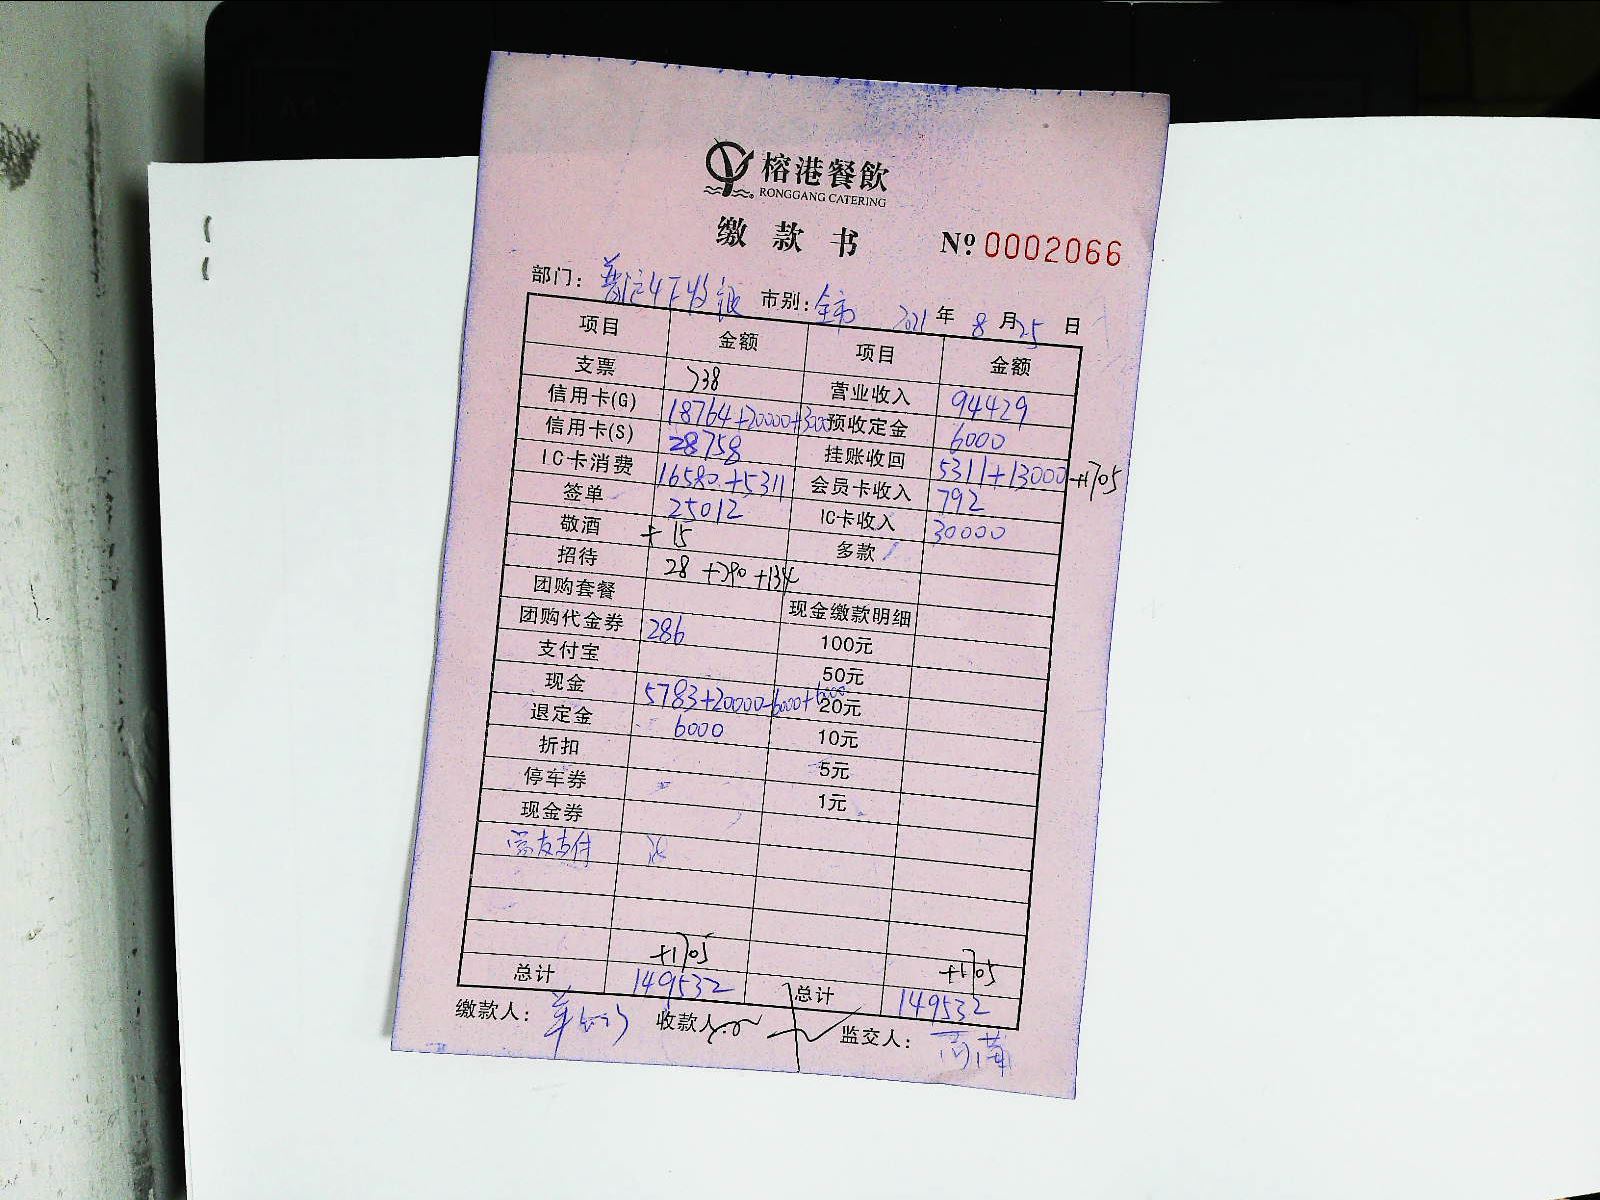 榕港餐飲
RONGGANG CATERING
缴款书 Nº 0002066
部门: 市别: 全市 2021年 8月25日
项目 金额 项目 金额
支票 738 营业收入 94429
信用卡(G) 18764+20000+3000 预收定金 6000
信用卡(S) 28758 挂账收回 5311+13000+1705
IC卡消费 16580+5311 会员卡收入 792
签单 25012 IC卡收入 30000
敬酒 15 多款
招待 28+290+134
团购套餐 现金缴款明细
团购代金券 286 100元
支付宝 50元
现金 5783+20000-6000+6000 20元
退定金 6000 10元
折扣 5元
停车券 1元
现金券
支付
+1705 +1705
总计 149532 总计 149532
缴款人: 收款人: 监交人: